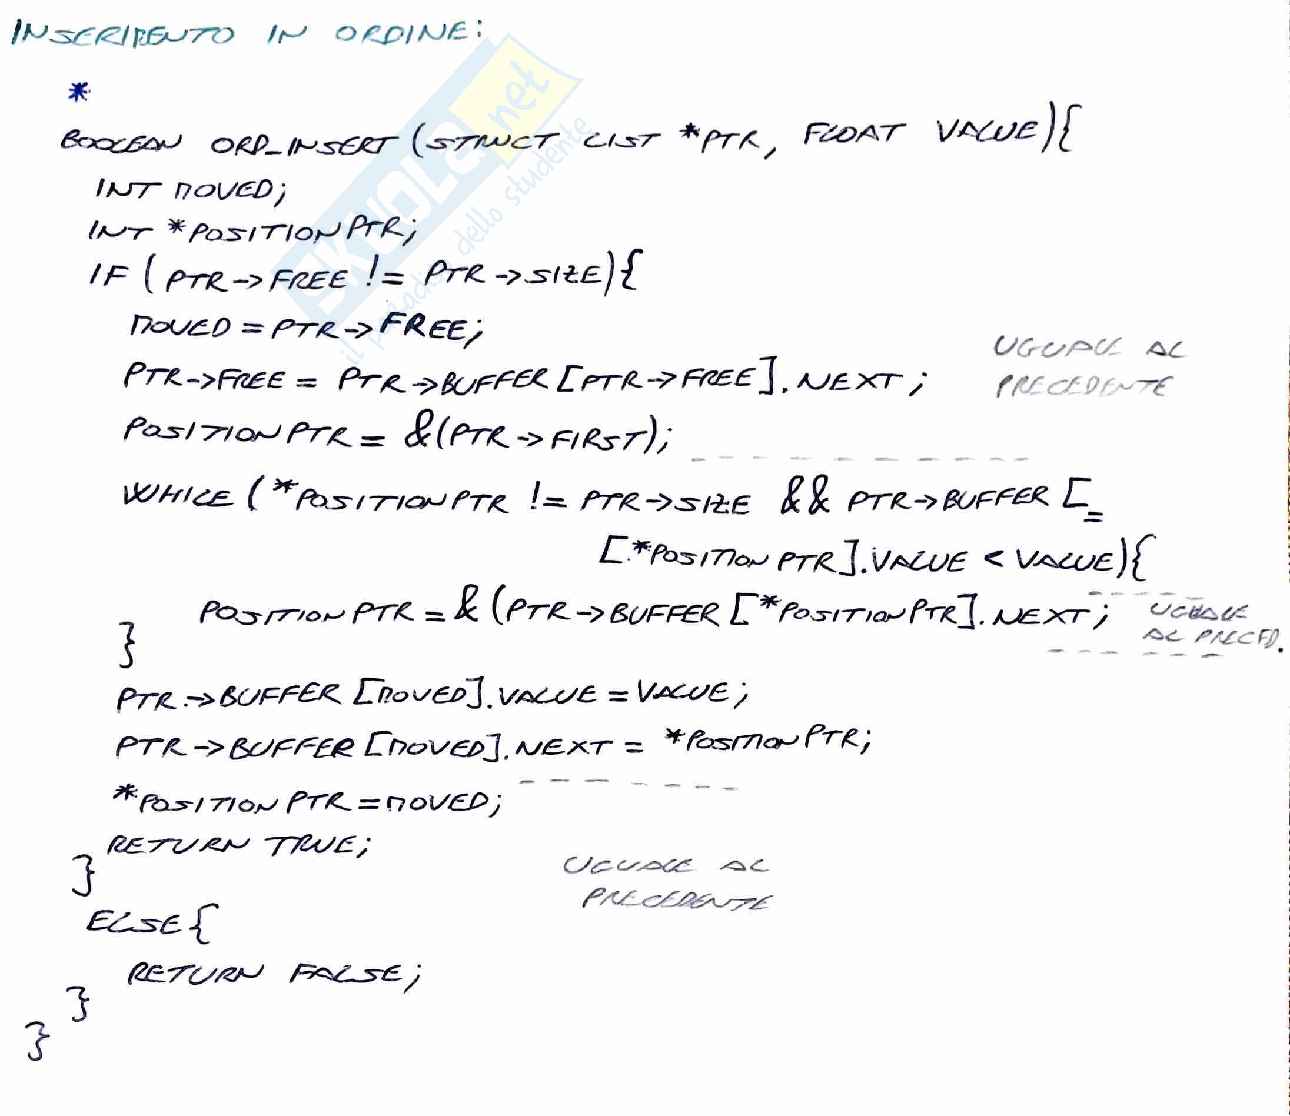 INSERIMENTO IN ORDINE:
*
BOOLEAN ORD_INSERT (STRUCT LIST *PTR, FLOAT VALUE){
INT MOVED;
INT *POSITIONPTR;
IF (PTR->FREE != PTR->SIZE){
MOVED = PTR->FREE;
UGUALE AL
PTR->FREE = PTR->BUFFER [PTR->FREE].NEXT;
PRECEDENTE
POSITIONPTR = &(PTR->FIRST);
WHILE (*POSITIONPTR != PTR->SIZE && PTR->BUFFER [=
[*POSITIONPTR].VALUE < VALUE){
POSITIONPTR = & (PTR->BUFFER [*POSITIONPTR].NEXT; UGUALE
AL PRECED.
}
PTR->BUFFER [MOVED].VALUE = VALUE;
PTR->BUFFER [MOVED].NEXT = *POSITIONPTR;
*POSITIONPTR = MOVED;
RETURN TRUE;
}
UGUALE AL
PRECEDENTE
ELSE{
RETURN FALSE;
}
}
SKUOLA.net
il paradiso dello studente